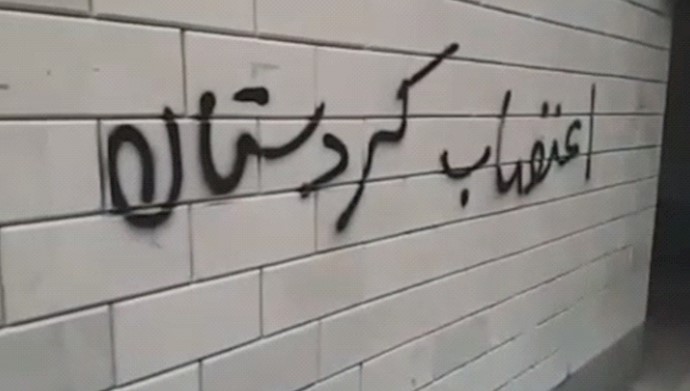 اعتصاب کردستان